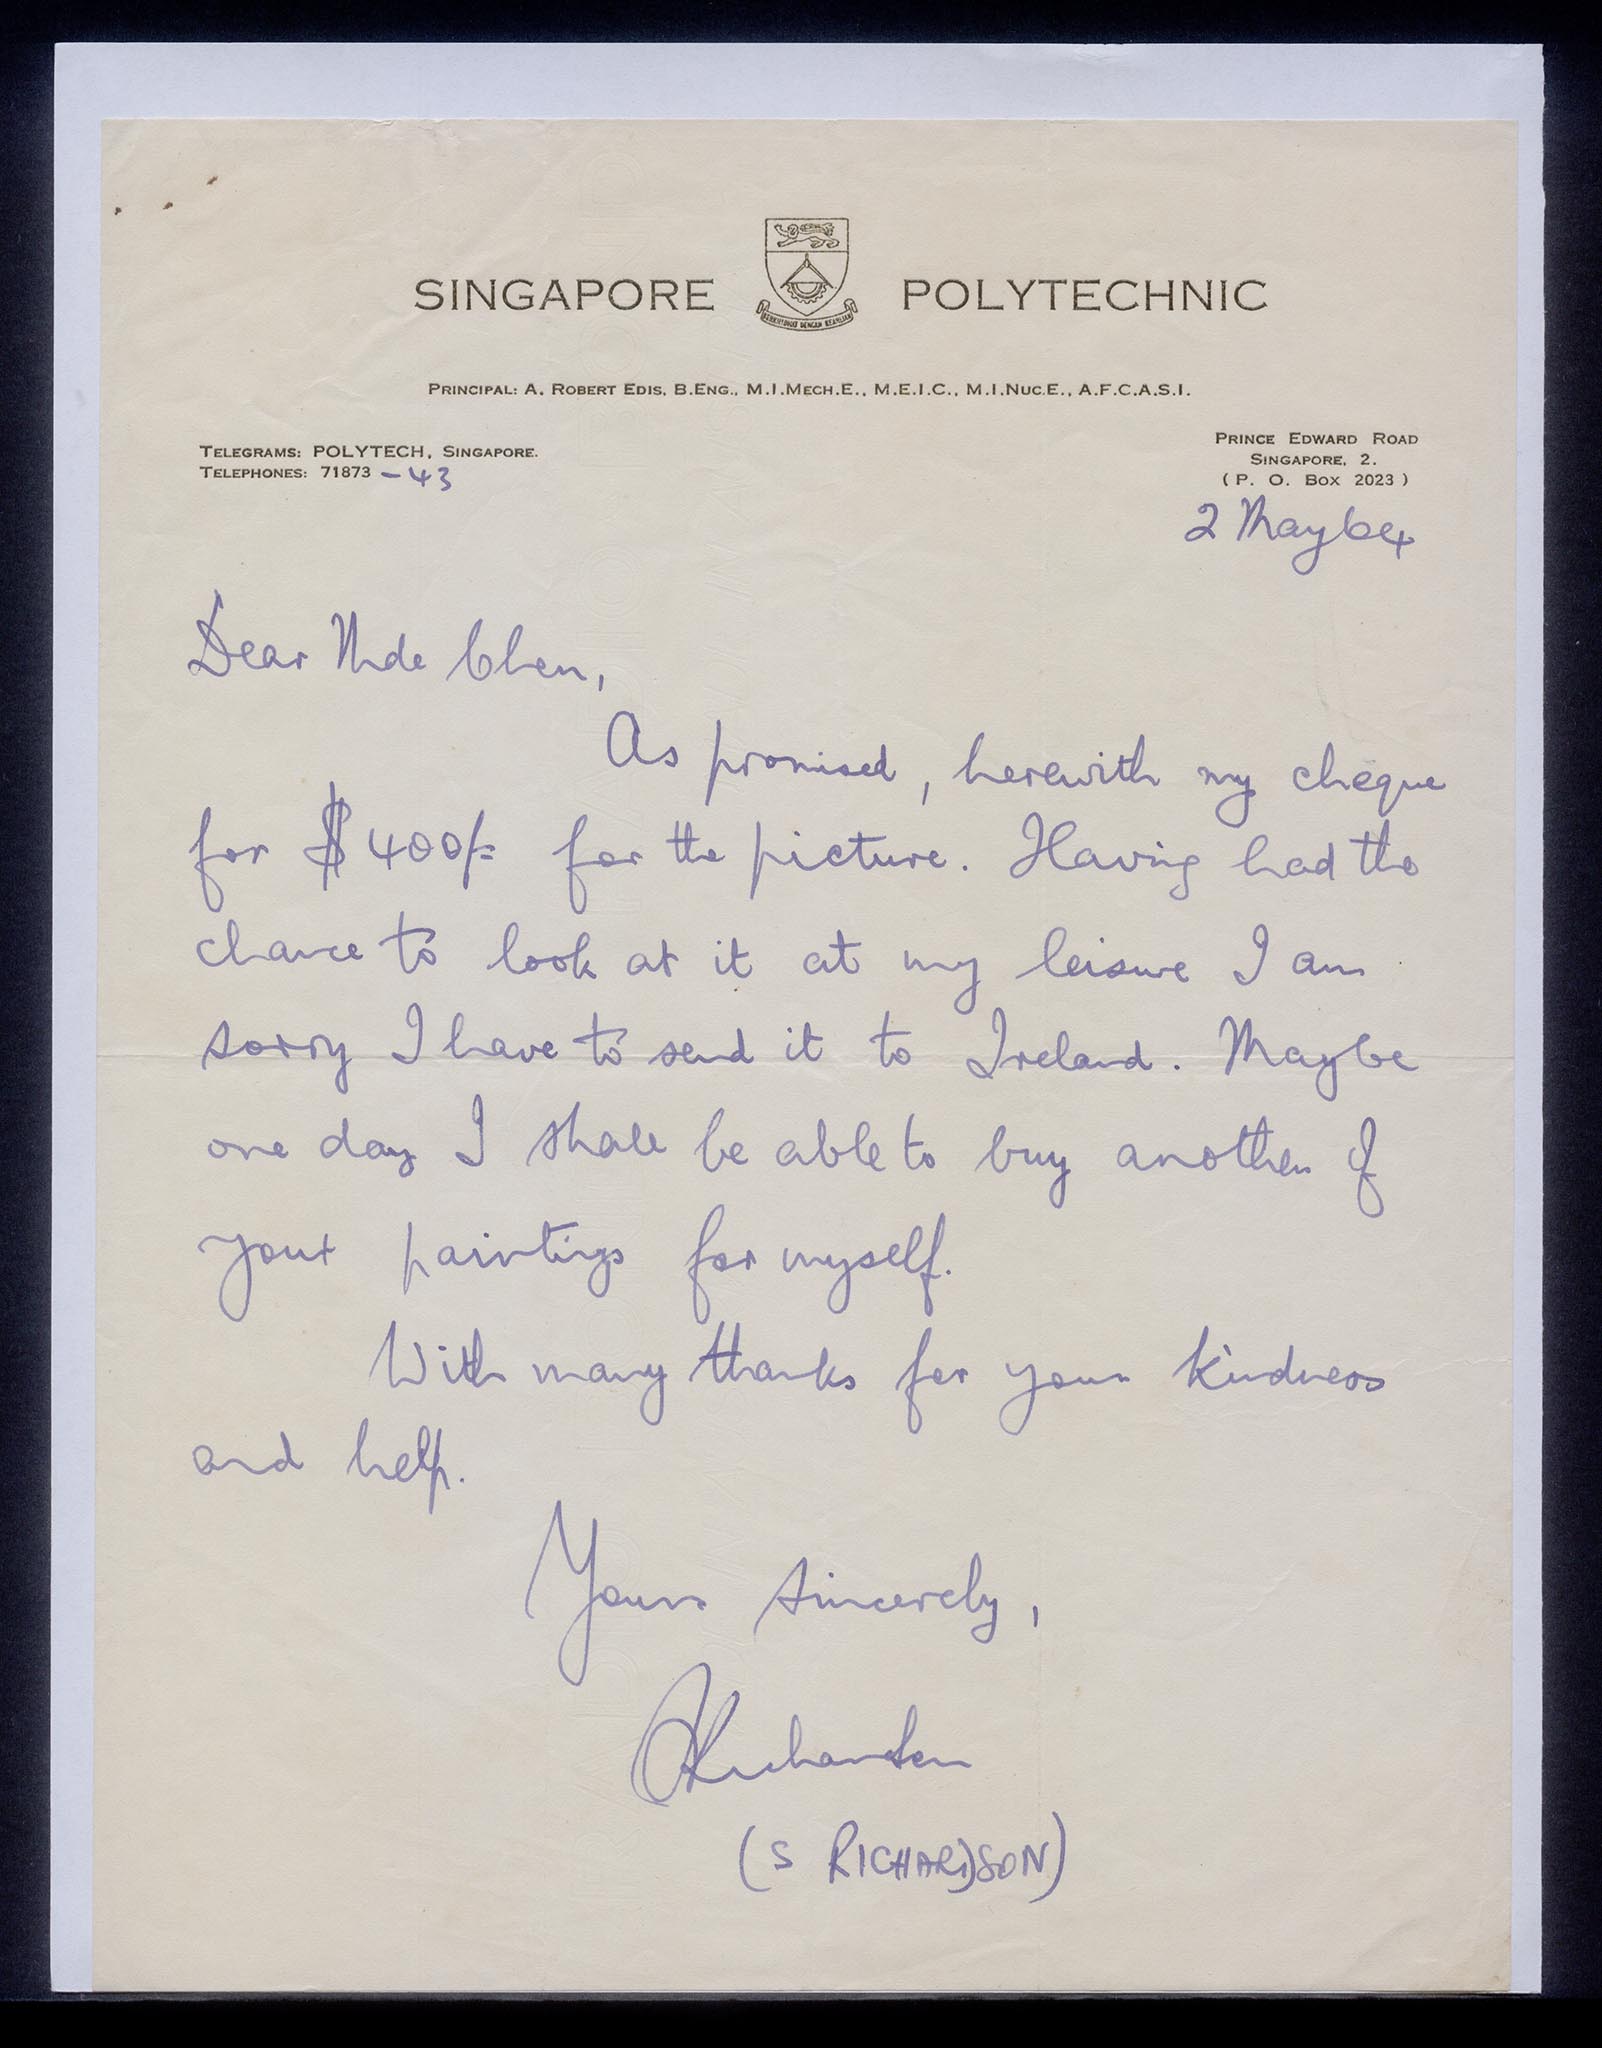 SINGAPORE POLYTECHNIC
BERKHIDMAT DENGAN KEAHLIAN
PRINCIPAL: A. ROBERT EDIS, B.ENG., M.I.MECH.E., M.E.I.C., M.I.NUC.E., A.F.C.A.S.I.
TELEGRAMS: POLYTECH, SINGAPORE.
TELEPHONES: 71873 - 43
PRINCE EDWARD ROAD
SINGAPORE, 2.
(P. O. BOX 2023)
2 May 64
Dear Mde Chen,
As promised, herewith my cheque
for $400/= for the picture. Having had the
chance to look at it at my leisure I am
sorry I have to send it to Ireland. Maybe
one day I shall be able to buy another of
your paintings for myself.
With many thanks for your kindness
and help.
Yours sincerely,
SRichardson
(S RICHARDSON)